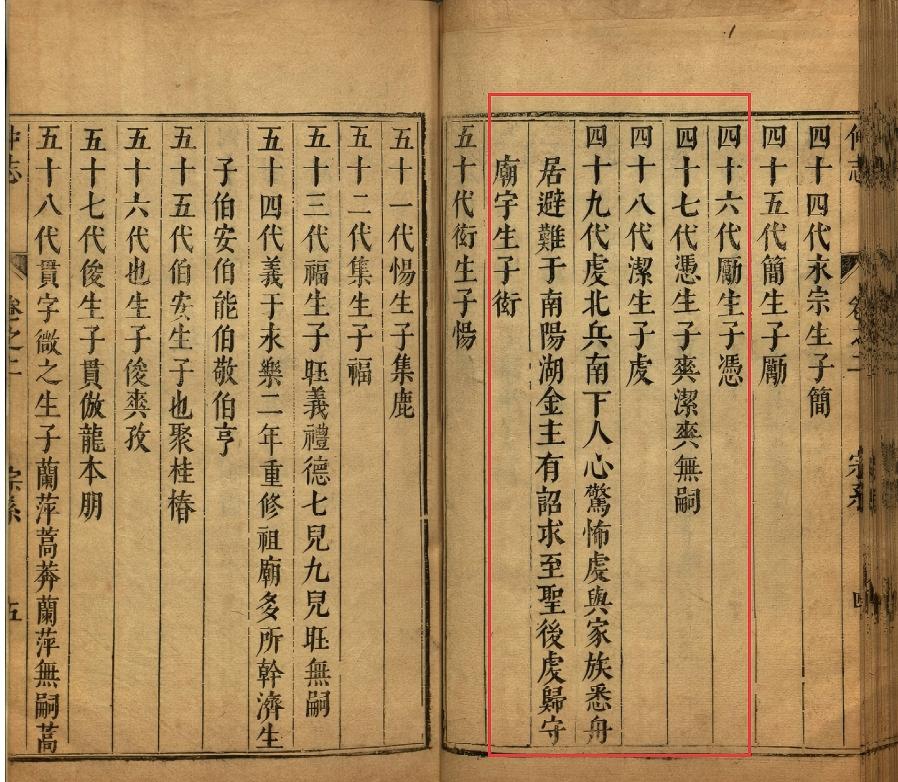 仲志
卷之二
宗系
四
四十四代永宗生子簡
四十五代簡生子勵
四十六代勵生子憑
四十七代憑生子爽潔爽無嗣
四十八代潔生子虔
四十九代虔北兵南下人心驚怖虔與家族悉舟
居避難于南陽湖金主有詔求至聖後虔歸守
廟宇生子衒
五十代衒生子惕
五十一代惕生子集鹿
五十二代集生子福
五十三代福生子旺義禮德七兒九兒旺無嗣
五十四代義于永樂二年重修祖廟多所幹濟生
子伯安伯能伯敬伯亨
五十五代伯安生子也聚桂椿
五十六代也生子俊爽孜
五十七代俊生子貫倣龍本朋
五十八代貫字微之生子蘭萍蒿莽蘭萍無嗣蒿
仲志
卷之二
宗系
五